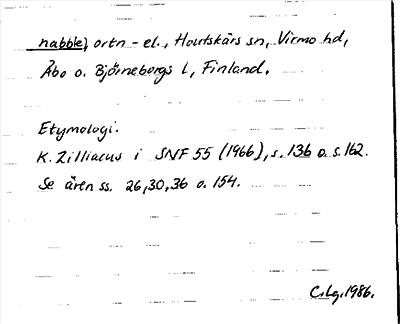 nabble, ortn-el., Houtskärs sn, Virmo hd,
Åbo o. Björneborgs l, Finland.
Etymologi.
K. Zilliacus i SNF 55 (1966), s. 136 o. s. 162.
Se även ss. 26, 30, 36 o. 154.
C. Lg. 1986.